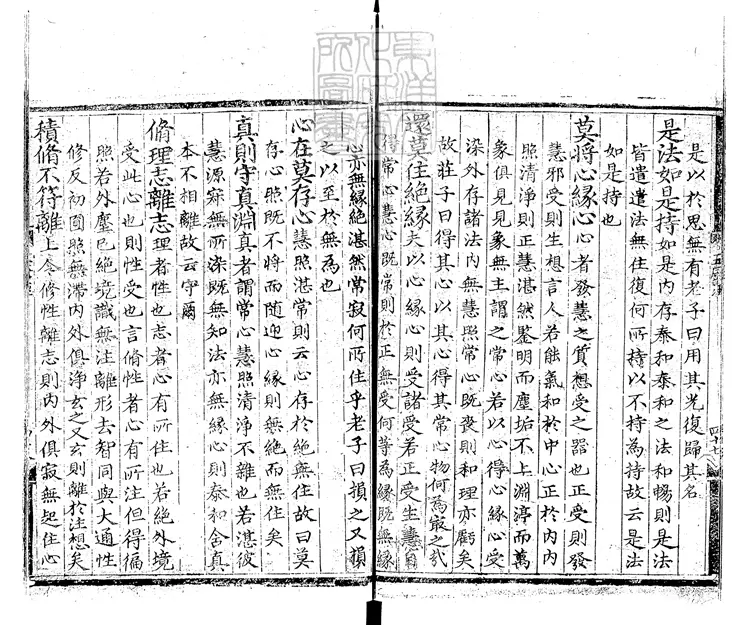 是以於思無有老子曰用其光復歸其名
是法如是持如是內存泰和泰和之法和暢則是法
皆遣遣法無住復何所持以不持為持故云是法
如是持也
莫將心緣心心者發慧之質想受之器也正受則發
慧邪受則生想言人若能氣和於中心正於內內
照清淨則正慧湛然鑒明而塵垢不上淵渟而萬
象俱見見象無主謂之常心若以心得心緣心受
染外存諸法內無慧照常心既喪則和理亦虧矣
故莊子曰得其心以其心得其常心物何為最之哉
還莫住絕緣夫以心緣心則受諸受若正受生慧自
得常心慧心既常則於正無受何等為緣既無緣
心亦無緣絕湛然常寂何所住乎老子曰損之又損
之以至於無為也
心在莫存心慧照湛常則云心存於絕無住故曰莫
存心照既不將而隨迎心緣則無絕而無住矣
真則守真淵真者謂常心慧照清淨不雜也若湛彼
慧源寂無所染既無知法亦無緣心則泰和含真
本不相離故云守爾
脩理志離志理者性也志者心有所住也若絕外境
受此心也則性受也言脩性者心有所注但得徧
照若外塵已絕境識無注離形去智同與大通性
修反初圓照無滯內外俱淨玄之又玄則離於注想矣
積脩不符離上令修性離志則內外俱寂無起住心